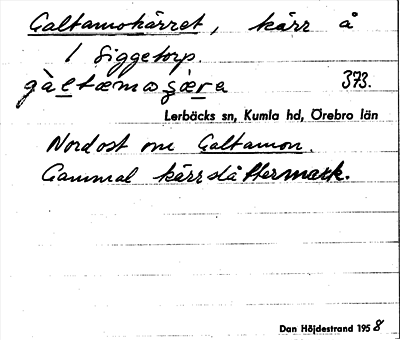 Galtamokärret, kärr å
1 Siggetorp.
gàltæmoşæ̀ra 373.
Lerbäcks sn, Kumla hd, Örebro län
Nordost om Galtamon.
Gammal kärrslåttermark.
Dan Höjdestrand 1958